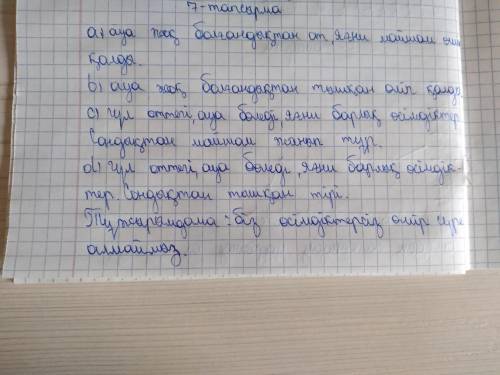 7-тапсырма
a) ауа жоқ болғандықтан от, яғни майшам өшіп
қалды.
b) ауа жоқ болғандықтан тышқан өліп қалды
c) гүл оттегі, ауа бөледі, яғни барлық өсімдіктер.
Сондықтан майшам жанып тұр.
d) гүл оттегі, ауа бөледі, яғни барлық өсімдік-
тер. Сондықтан тышқан тірі.
Тұжырымдама: біз өсімдіктерсіз өмір сүре
алмаймыз.